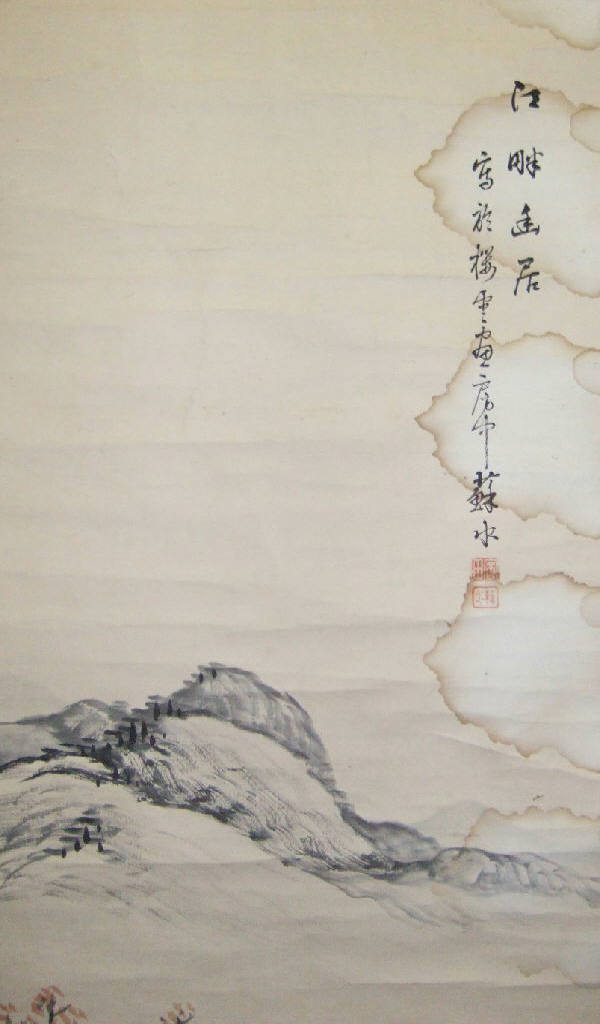 江畔幽居
寫於櫻雲畫房中蘇水